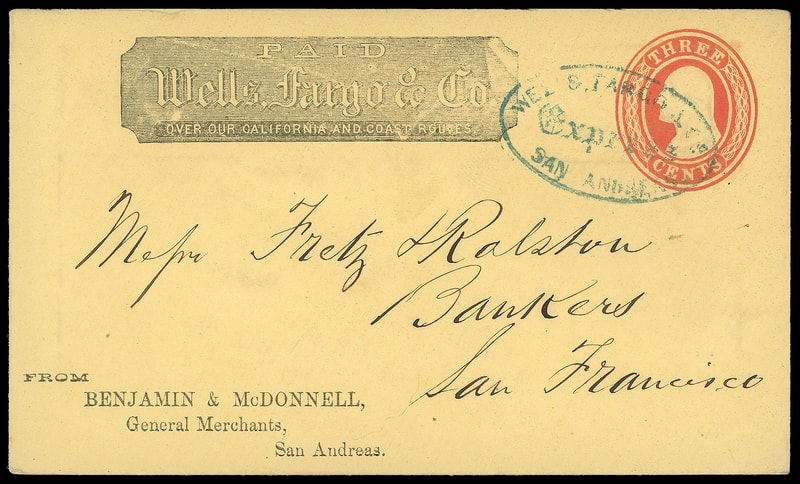 PAID
Wells, Fargo & Co
OVER OUR CALIFORNIA AND COAST ROUTES.
WELLS, FARGO & CO'S
Express
SAN ANDREAS
THREE
CENTS
Messrs Fretz & Ralston
Bankers
San Francisco
FROM
BENJAMIN & McDONNELL,
General Merchants,
San Andreas.